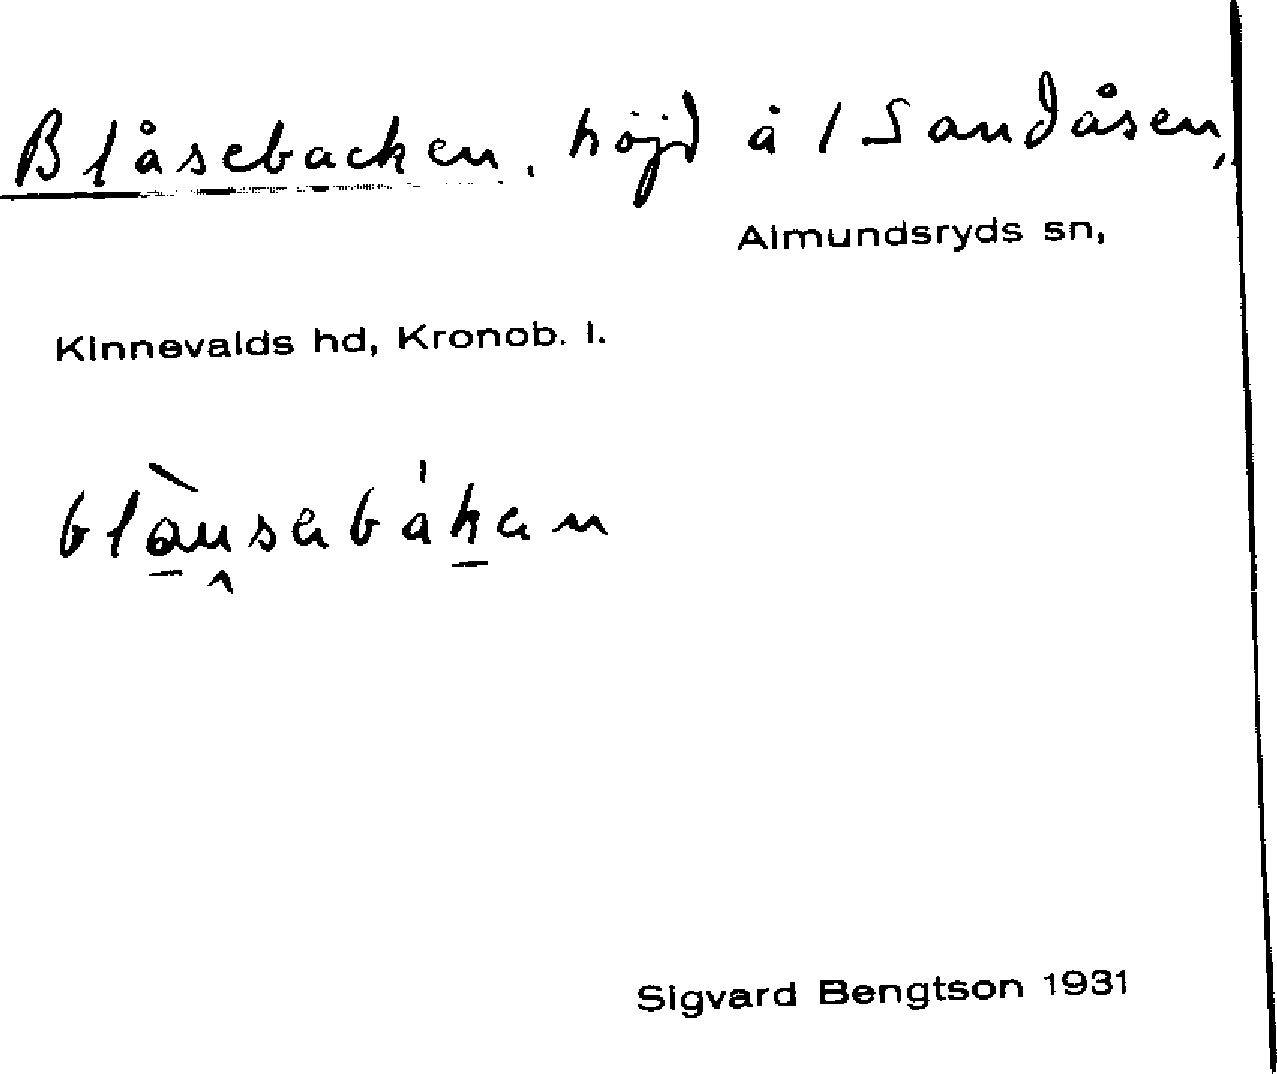 Blåsebacken, höjd å 1 Sandåsen,
Almundsryds sn,
Kinnevalds hd, Kronob. l.
Sigvard Bengtson 1931